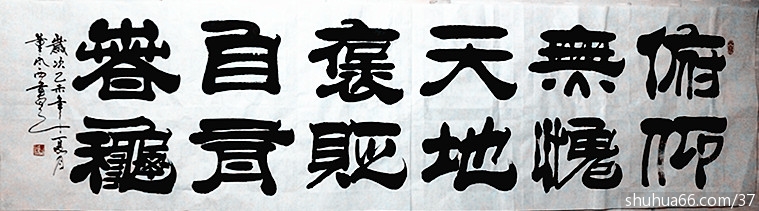 俯仰
無愧
天地
褒貶
自有
春龝
歲次乙未年夏月
shuhua66.com/37